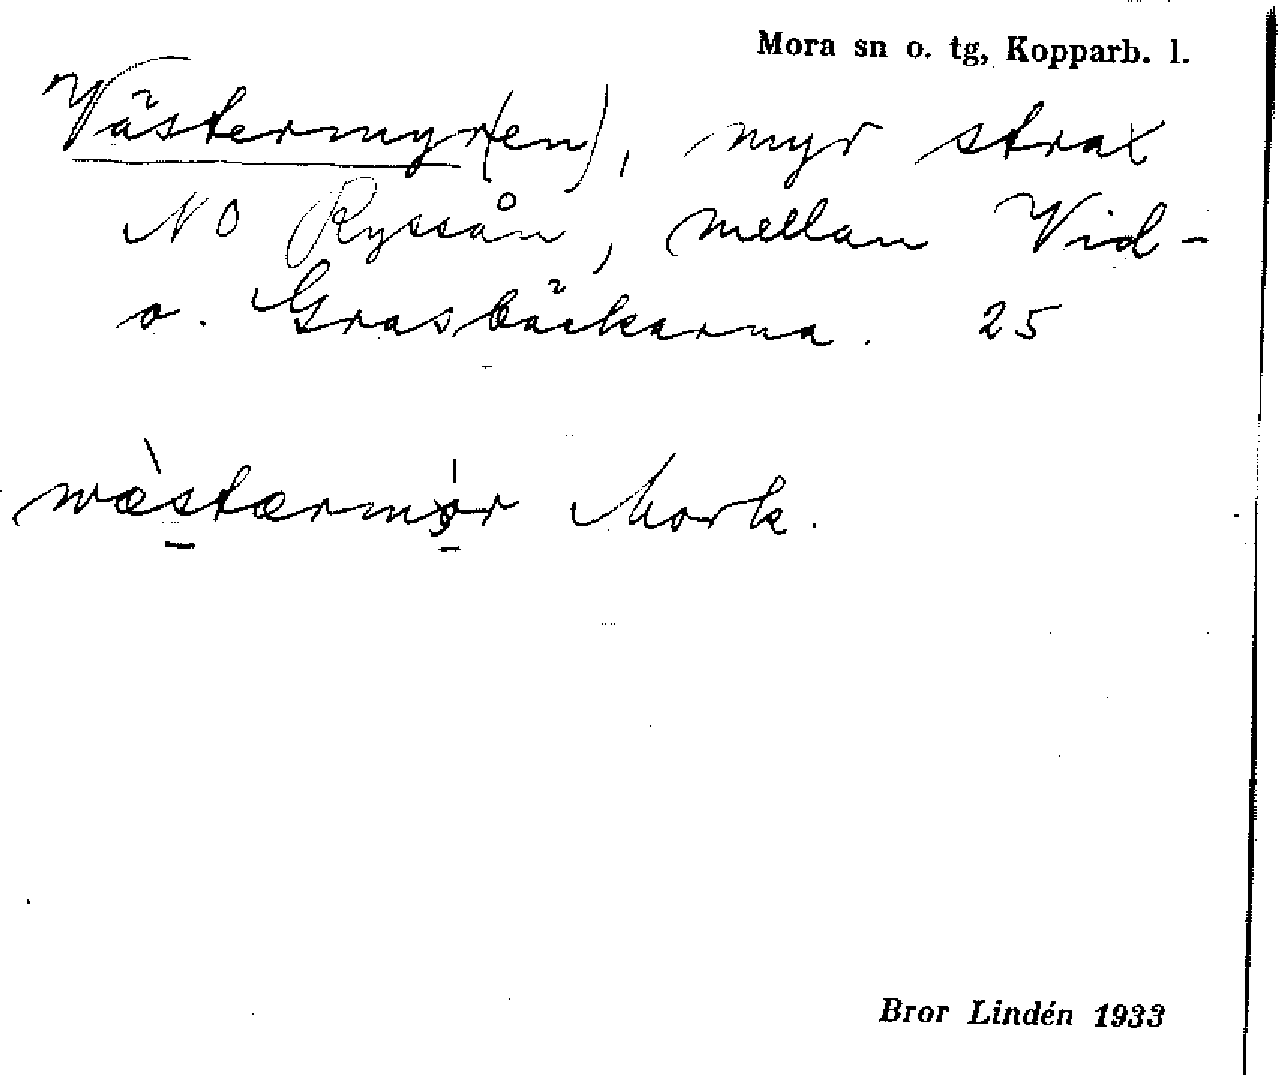 Mora sn o. tg, Kopparb. l.
Västermyr(en), myr strax
NO Ryssån, mellan Vid-
o. Gräsbäckarna. 25
wæ̀stærmør Mork.
Bror Lindén 1933